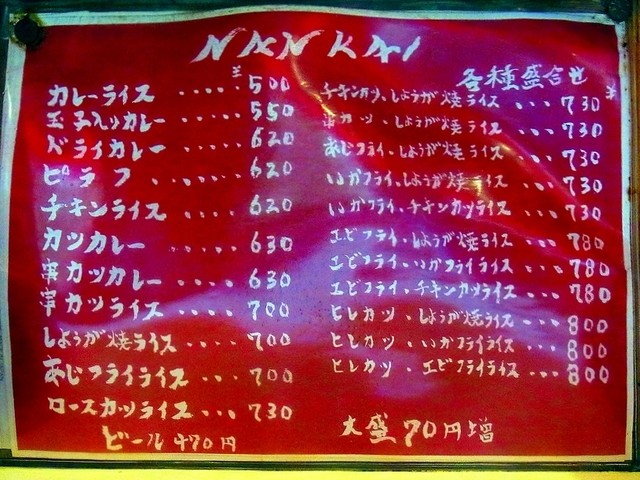 NANKAI
¥
カレーライス ..... 500
玉子入りカレー .... 550
ドライカレー .... 620
ピラフ ...... 620
チキンライス ..... 620
カツカレー .... 630
串カツカレー .... 630
串カツライス .... 700
しょうが焼ライス .... 700
あじフライライス .... 700
ロースカツライス ... 730
ビール 470円
各種盛合せ
¥
チキンカツ、しょうが焼ライス ... 730
串カツ、しょうが焼ライス ... 730
あじフライ、しょうが焼ライス ... 730
いかフライ、しょうが焼ライス ... 730
いかフライ、チキンカツライス ... 730
エビフライ、しょうが焼ライス ... 780
エビフライ・いかフライライス ... 780
エビフライ・チキンカツライス ... 780
ヒレカツ・しょうが焼ライス ... 800
ヒレカツ・いかフライライス ... 800
ヒレカツ・エビフライライス ... 800
大盛70円増